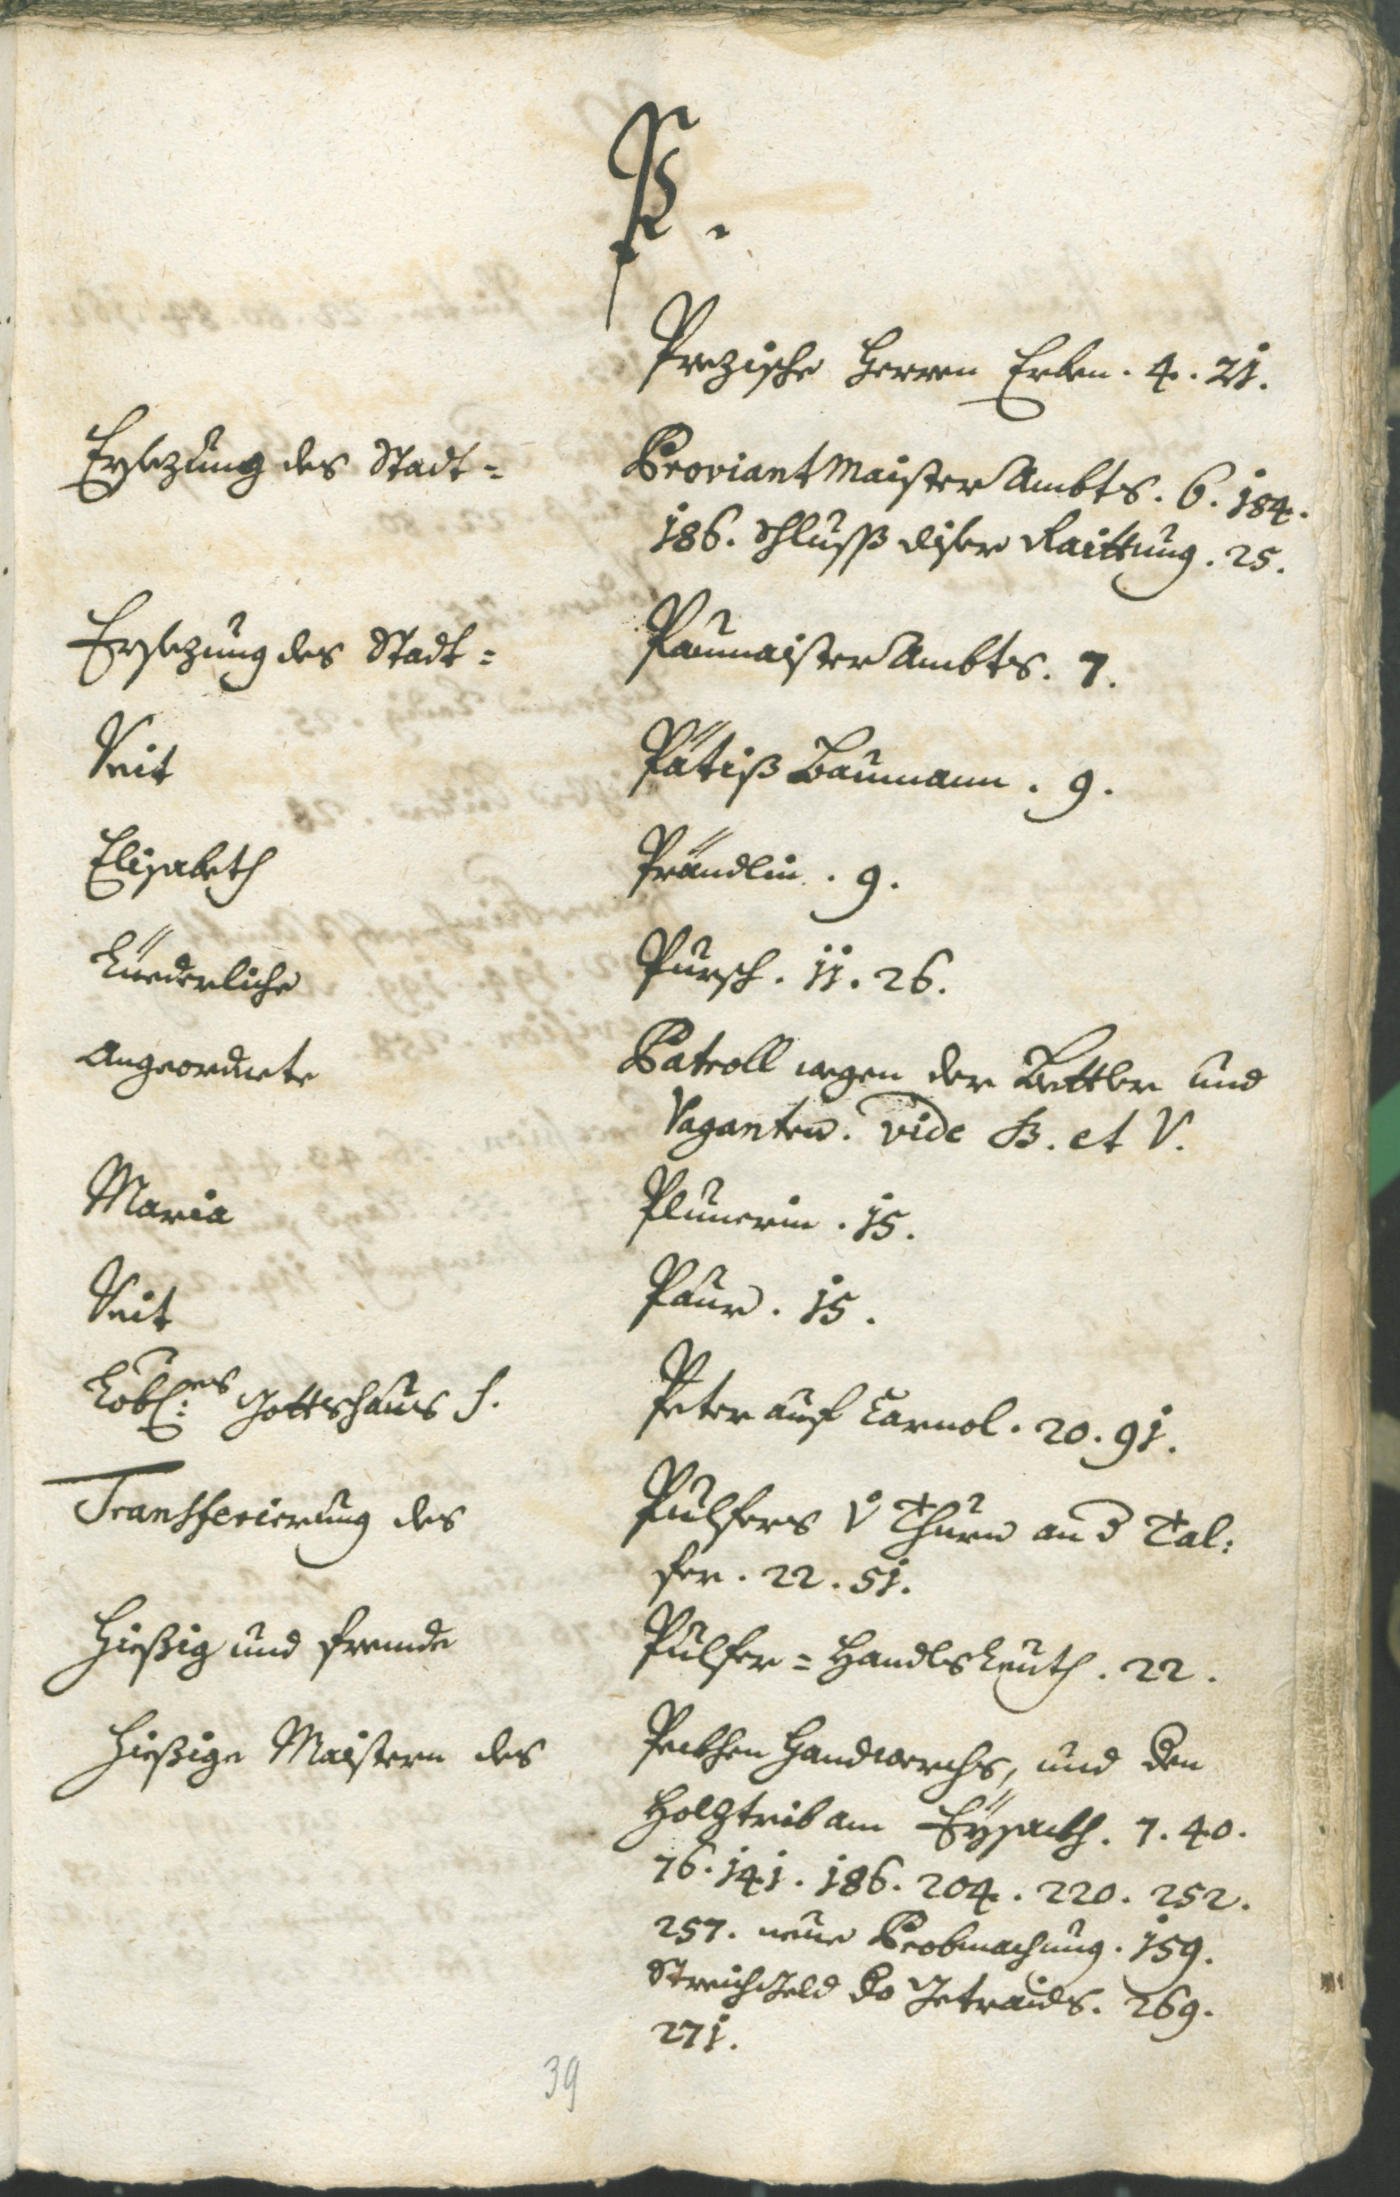 P.
Prezische Herren Erben. 4. 21.
Ersezung des Stadt= Proviant Maister Ambts. 6. 184.
186. Schlusß diser Raittung. 25.
Ersezung des Stadt= Paumaister Ambts. 7.
Veit Pätiß Baumann. 9.
Elisabeth Prändlin. 9.
Lüederliche Pursch. 11. 26.
Angeordnete Patroll wegen der Bettler und
Vaganten. vide B. et V.
Maria Plunerin. 15.
Veit Paur. 15.
Löbl:es Gottshaus S. Peter auf Carnol. 20. 91.
Transferierung des Pulfers V Thurn an d Tal:
fer. 22. 51.
Hießig und frembde Pulfer=Handlsleuth. 22.
Hießige Maistern des Peckhen Handwerchs, und den
Holztrib am Eÿsackh. 7. 40.
76. 141. 186. 204. 220. 252.
257. neue Probmachung. 159.
Streichgeld do Getraids. 269.
271.
39